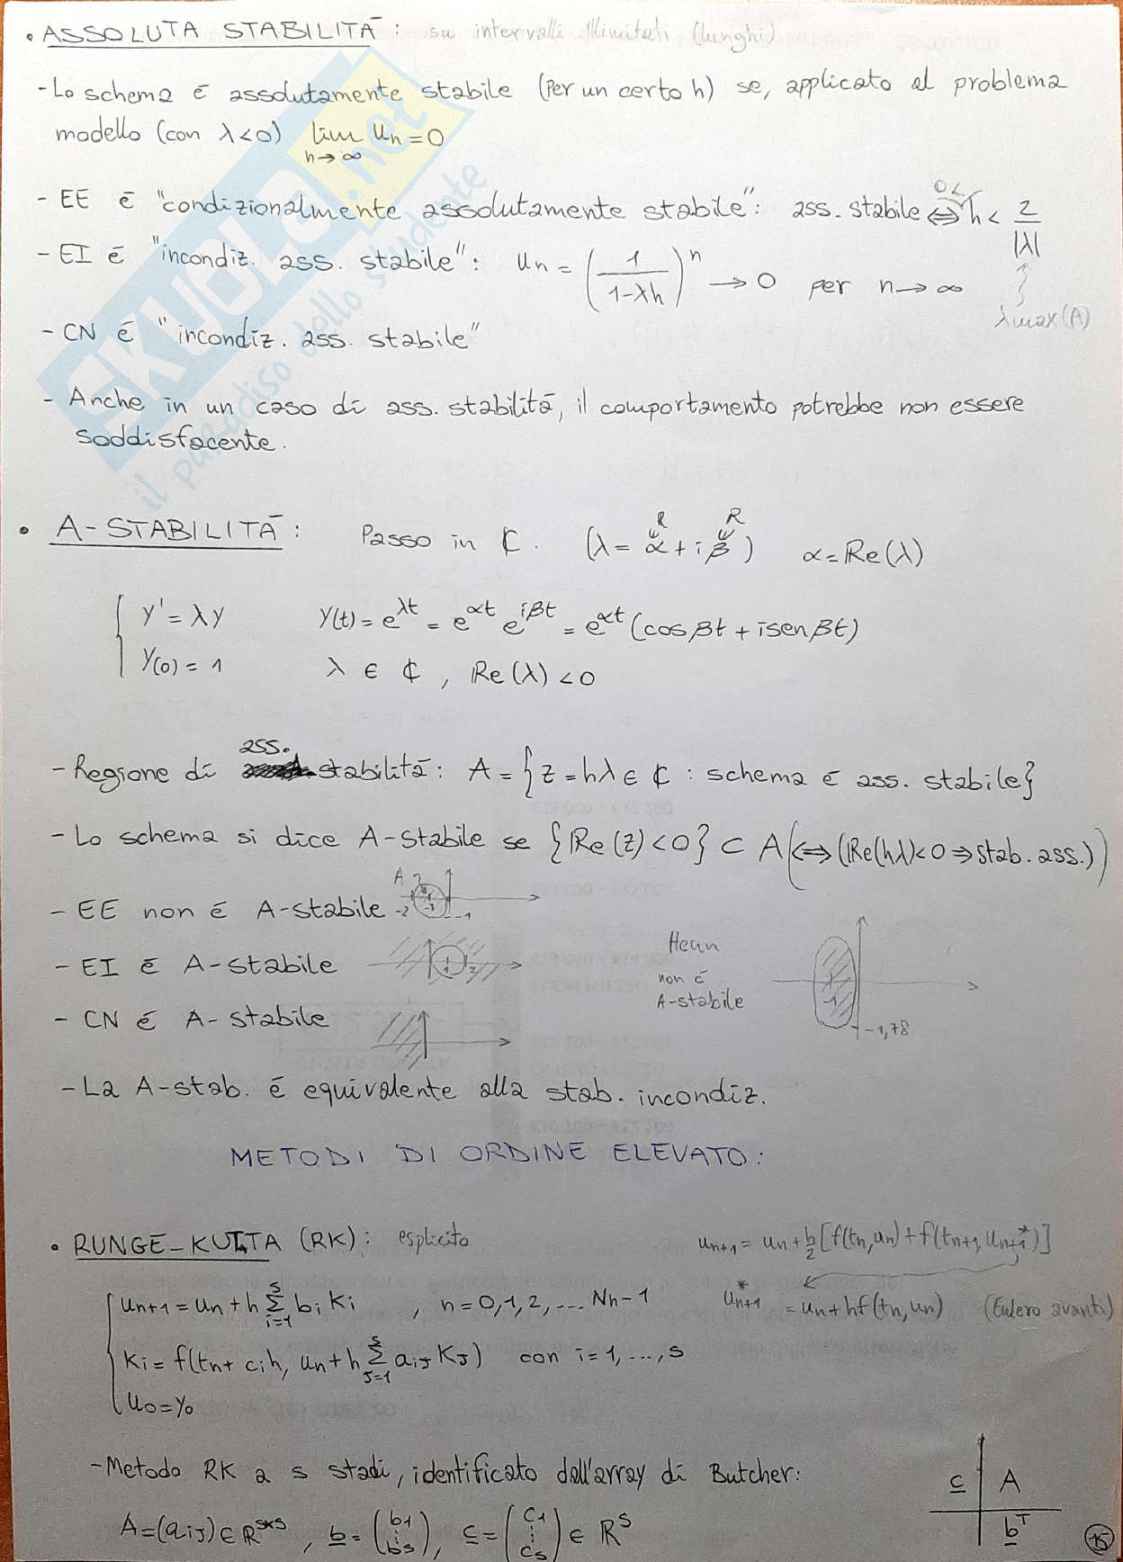 • ASSOLUTA STABILITÀ: su intervalli illimitati (lunghi)
- Lo schema è assolutamente stabile (Per un certo h) se, applicato al problema
modello (con λ<0) lim uₙ=0
n→∞
- EE è "condizionalmente assolutamente stabile": ass. stabile ⟺ 0< h < 2/|λ|
- EI è "incondiz. ass. stabile": uₙ = (1/(1-λh))ⁿ → 0 per n→∞
λmax(A)
- CN è "incondiz. ass. stabile"
- Anche in un caso di ass. stabilità, il comportamento potrebbe non essere
soddisfacente.
SKUOLA.net
il paradiso dello studente
• A-STABILITÀ: Passo in ℂ. (λ = α + iβ) α = Re(λ)
R R
{ y' = λy y(t) = e^λt = e^αt e^iβt = e^αt (cosβt + isenβt)
y(0) = 1 λ ∈ ℂ, Re(λ)<0
- Regione di ass. stabilità: A = {z = hλ ∈ ℂ : schema è ass. stabile}
- Lo schema si dice A-stabile se {Re(z)<0} ⊂ A (⟺ (Re(hλ)<0 ⇒ stab. ass.))
- EE non è A-stabile A -2 -1 -1
- EI è A-stabile 1 2
- CN è A-stabile
Heun
non è
A-stabile
-1
-1,78
- La A-stab. è equivalente alla stab. incondiz.
METODI DI ORDINE ELEVATO:
• RUNGE-KUTTA (RK): esplicito
uₙ₊₁ = uₙ + h/2 [f(tₙ,uₙ) + f(tₙ₊₁, u*ₙ₊₁)]
{ uₙ₊₁ = uₙ + h Σ_{i=1}^{s} bᵢ Kᵢ , n = 0,1,2,... Nh-1
u*ₙ₊₁ = uₙ + hf(tₙ,uₙ) (Eulero avanti)
Kᵢ = f(tₙ + cᵢh, uₙ + h Σ_{J=1}^{s} aᵢJ KJ) con i = 1,...,s
u₀ = y₀
- Metodo RK a s stadi, identificato dall'array di Butcher:
c | A
bᵀ
A = (aᵢJ) ∈ R^{s×s}, b = (b₁ ⋮ bs), c = (c₁ ⋮ cs) ∈ Rˢ
15